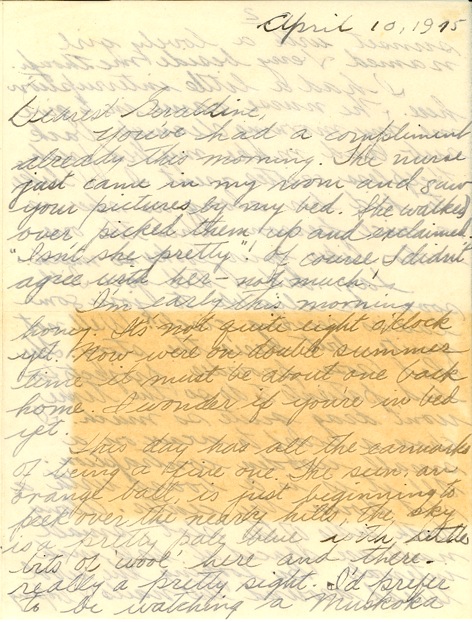 April 10, 1945
Dearest Geraldine,
You've had a compliment
already this morning. The nurse
just came in my room and saw
your pictures by my bed. She walked
over picked them up and exclaimed.
"Isn't she pretty"! Of course I didn't
agree with her - not much!
I'm early this morning
honey. It's not quite eight o'clock
yet. Now we're on double summer
time it must be about one back
home. I wonder if you're in bed
yet.
This day has all the earmarks
of being a fine one. The sun, an
orange ball, is just beginning to
peek over the nearby hills, the sky
is a pretty pale blue with little
bits of 'wool' here and there.
really a pretty sight. I'd prefer
to be watching a Muskoka